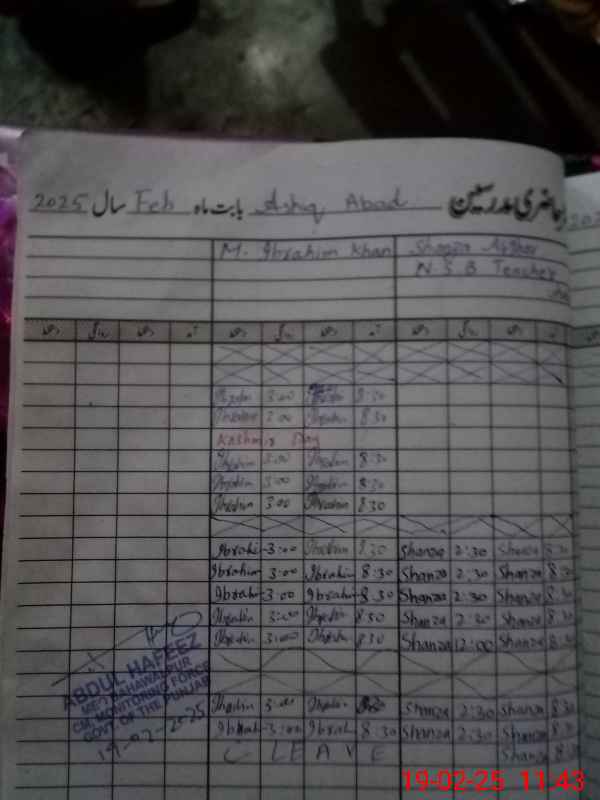 حاضری مدرسین Ashiq Abad بابت ماہ Feb سال 2025
M. Ibrahim Khan Shanza Asghar
N S B Teacher
Ibrahim 3:00 Ibrahim 8:30
Ibrahim 2:00 Ibrahim 8:30
Kashmir Day
Ibrahim 3:00 Ibrahim 8:30
Ibrahim 3:00 Ibrahim 8:30
Ibrahim 3:00 Ibrahim 8:30
Ibrahi 3:00 Ibrahim 8:30 Shanza 2:30 Shanza 8:30
Ibrahim 3:00 Ibrahim 8:30 Shanza 2:30 Shanza 8:30
Ibrahi 3:00 Ibrahim 8:30 Shanza 2:30 Shanza 8:30
Ibrahim 3:00 Ibrahim 8:30 Shanza 2:30 Shanza 8:30
Ibrahim 3:00 Ibrahim 8:30 Shanza 12:00 Shanza 8:30
Ibrahim 3:00 Ibrahim 8:30 Shanza 2:30 Shanza 8:30
Ibrahi 3:00 Ibrahi 8:30 Shanza 2:30 Shanza 8:30
C LEAVE Shanza 8:30
ABDUL HAFEEZ
BAHAWALPUR
CM MONITORING FORCE
GOVT OF THE PUNJAB
19-02-2025
19-02-25 11:43